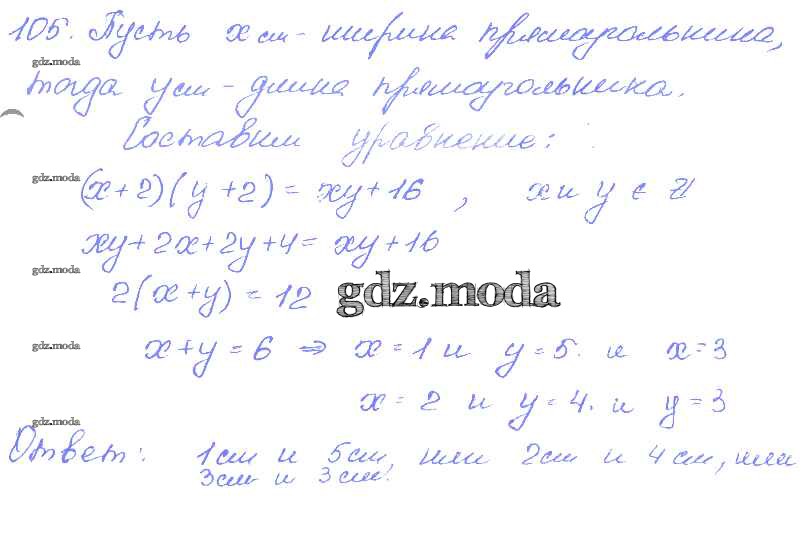 105. Пусть x см - ширина прямоугольника,
gdz.moda
тогда y см - длина прямоугольника.
Составим уравнение:
gdz.moda
(x+2)(y+2) = xy+16 , x и y ∈ Z
xy+2x+2y+4= xy+16
gdz.moda
2(x+y) = 12 gdz.moda
gdz.moda
x+y=6 ⇒ x=1 и y=5. и x=3
x=2 и y=4. и y=3
gdz.moda
Ответ: 1см и 5см, или 2см и 4см, или
3см и 3см.